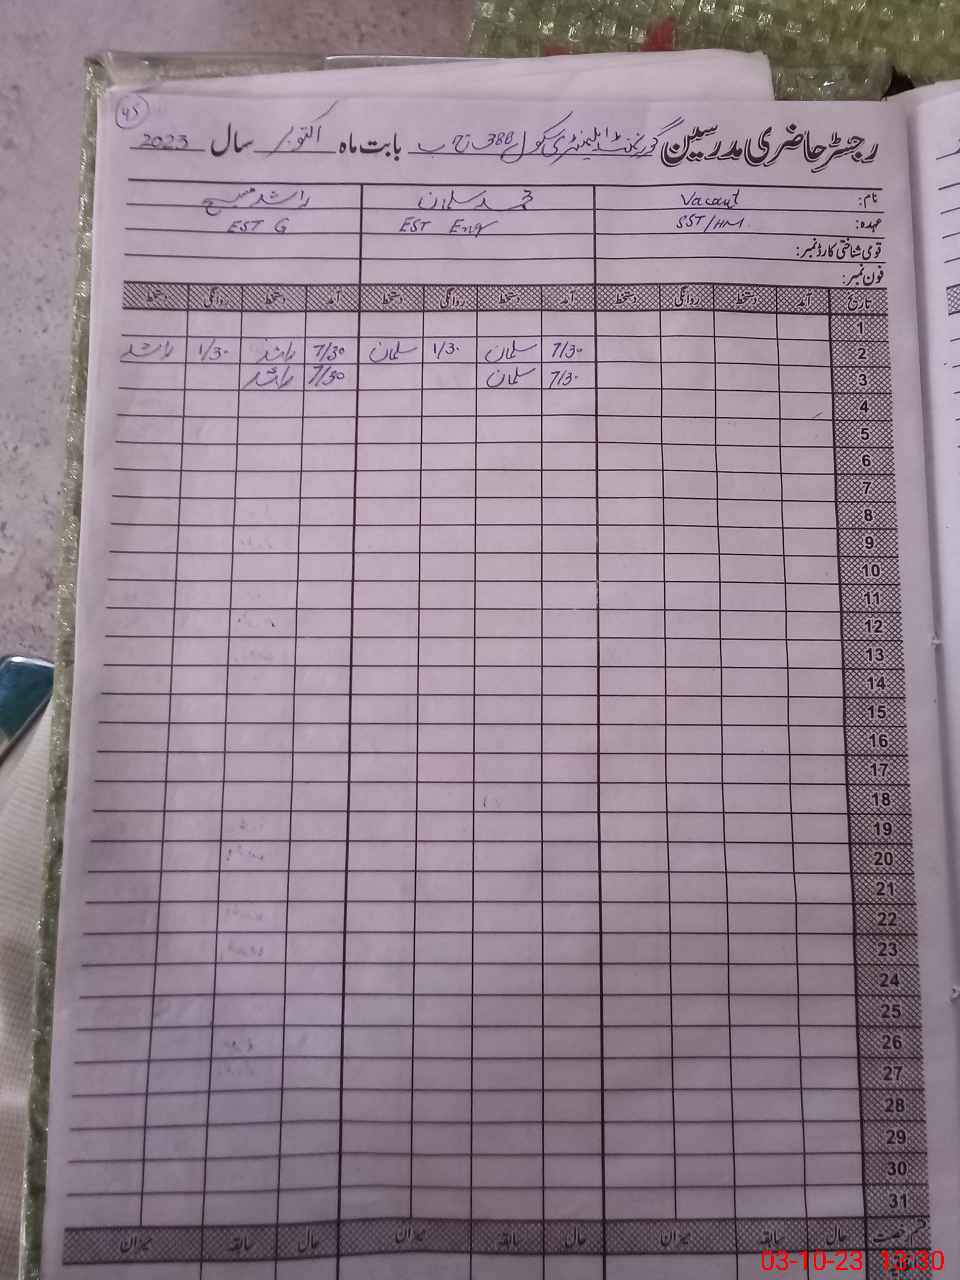 45
رجسٹر حاضری مدرسین گورنمنٹ ایلیمنٹری سکول 388 ج ب بابت ماہ اکتوبر سال 2023
نام: Vacant محمد سلمان راشد مسیح
عہدہ: SST/HM EST Eng EST G
قومی شناختی کارڈ نمبر:
فون نمبر:
تاریخ آمد دستخط روانگی دستخط آمد دستخط روانگی دستخط آمد دستخط روانگی دستخط
1
2 7/30 سلمان 1/30 سلمان 7/30 راشد 1/30 راشد
3 7/30 سلمان 7/30 راشد
4
5
6
7
8
9
10
11
12
13
14
15
16
17
18
19
20
21
22
23
24
25
26
27
28
29
30
31
قسم رخصت حال سابقہ میزان حال سابقہ میزان حال سابقہ میزان
03-10-23 13:30